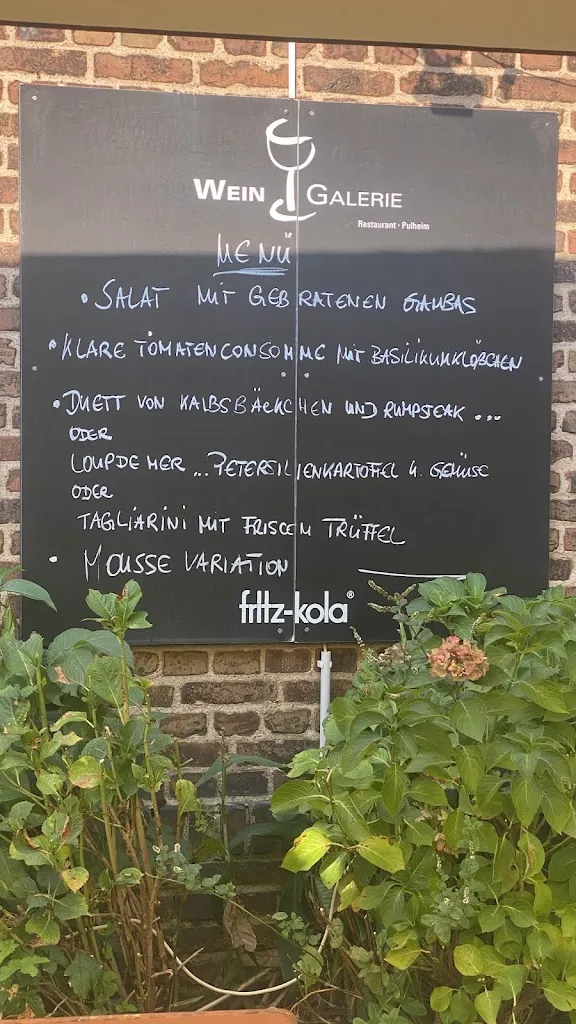 WEIN GALERIE
Restaurant · Pulheim
MENÜ
• SALAT MIT GEBRATENEN GAMBAS
• KLARE TOMATENCONSOMME MIT BASILIKUMKLÖSCHEN
• DUETT VON KALBSBÄCKCHEN UND RUMPSTEAK ...
ODER
LOUP DE MER ... PETERSILIENKARTOFFEL U. GEMÜSE
ODER
TAGLIARINI MIT FRISCEM TRÜFFEL
• MOUSSE VARIATION
fritz-kola®